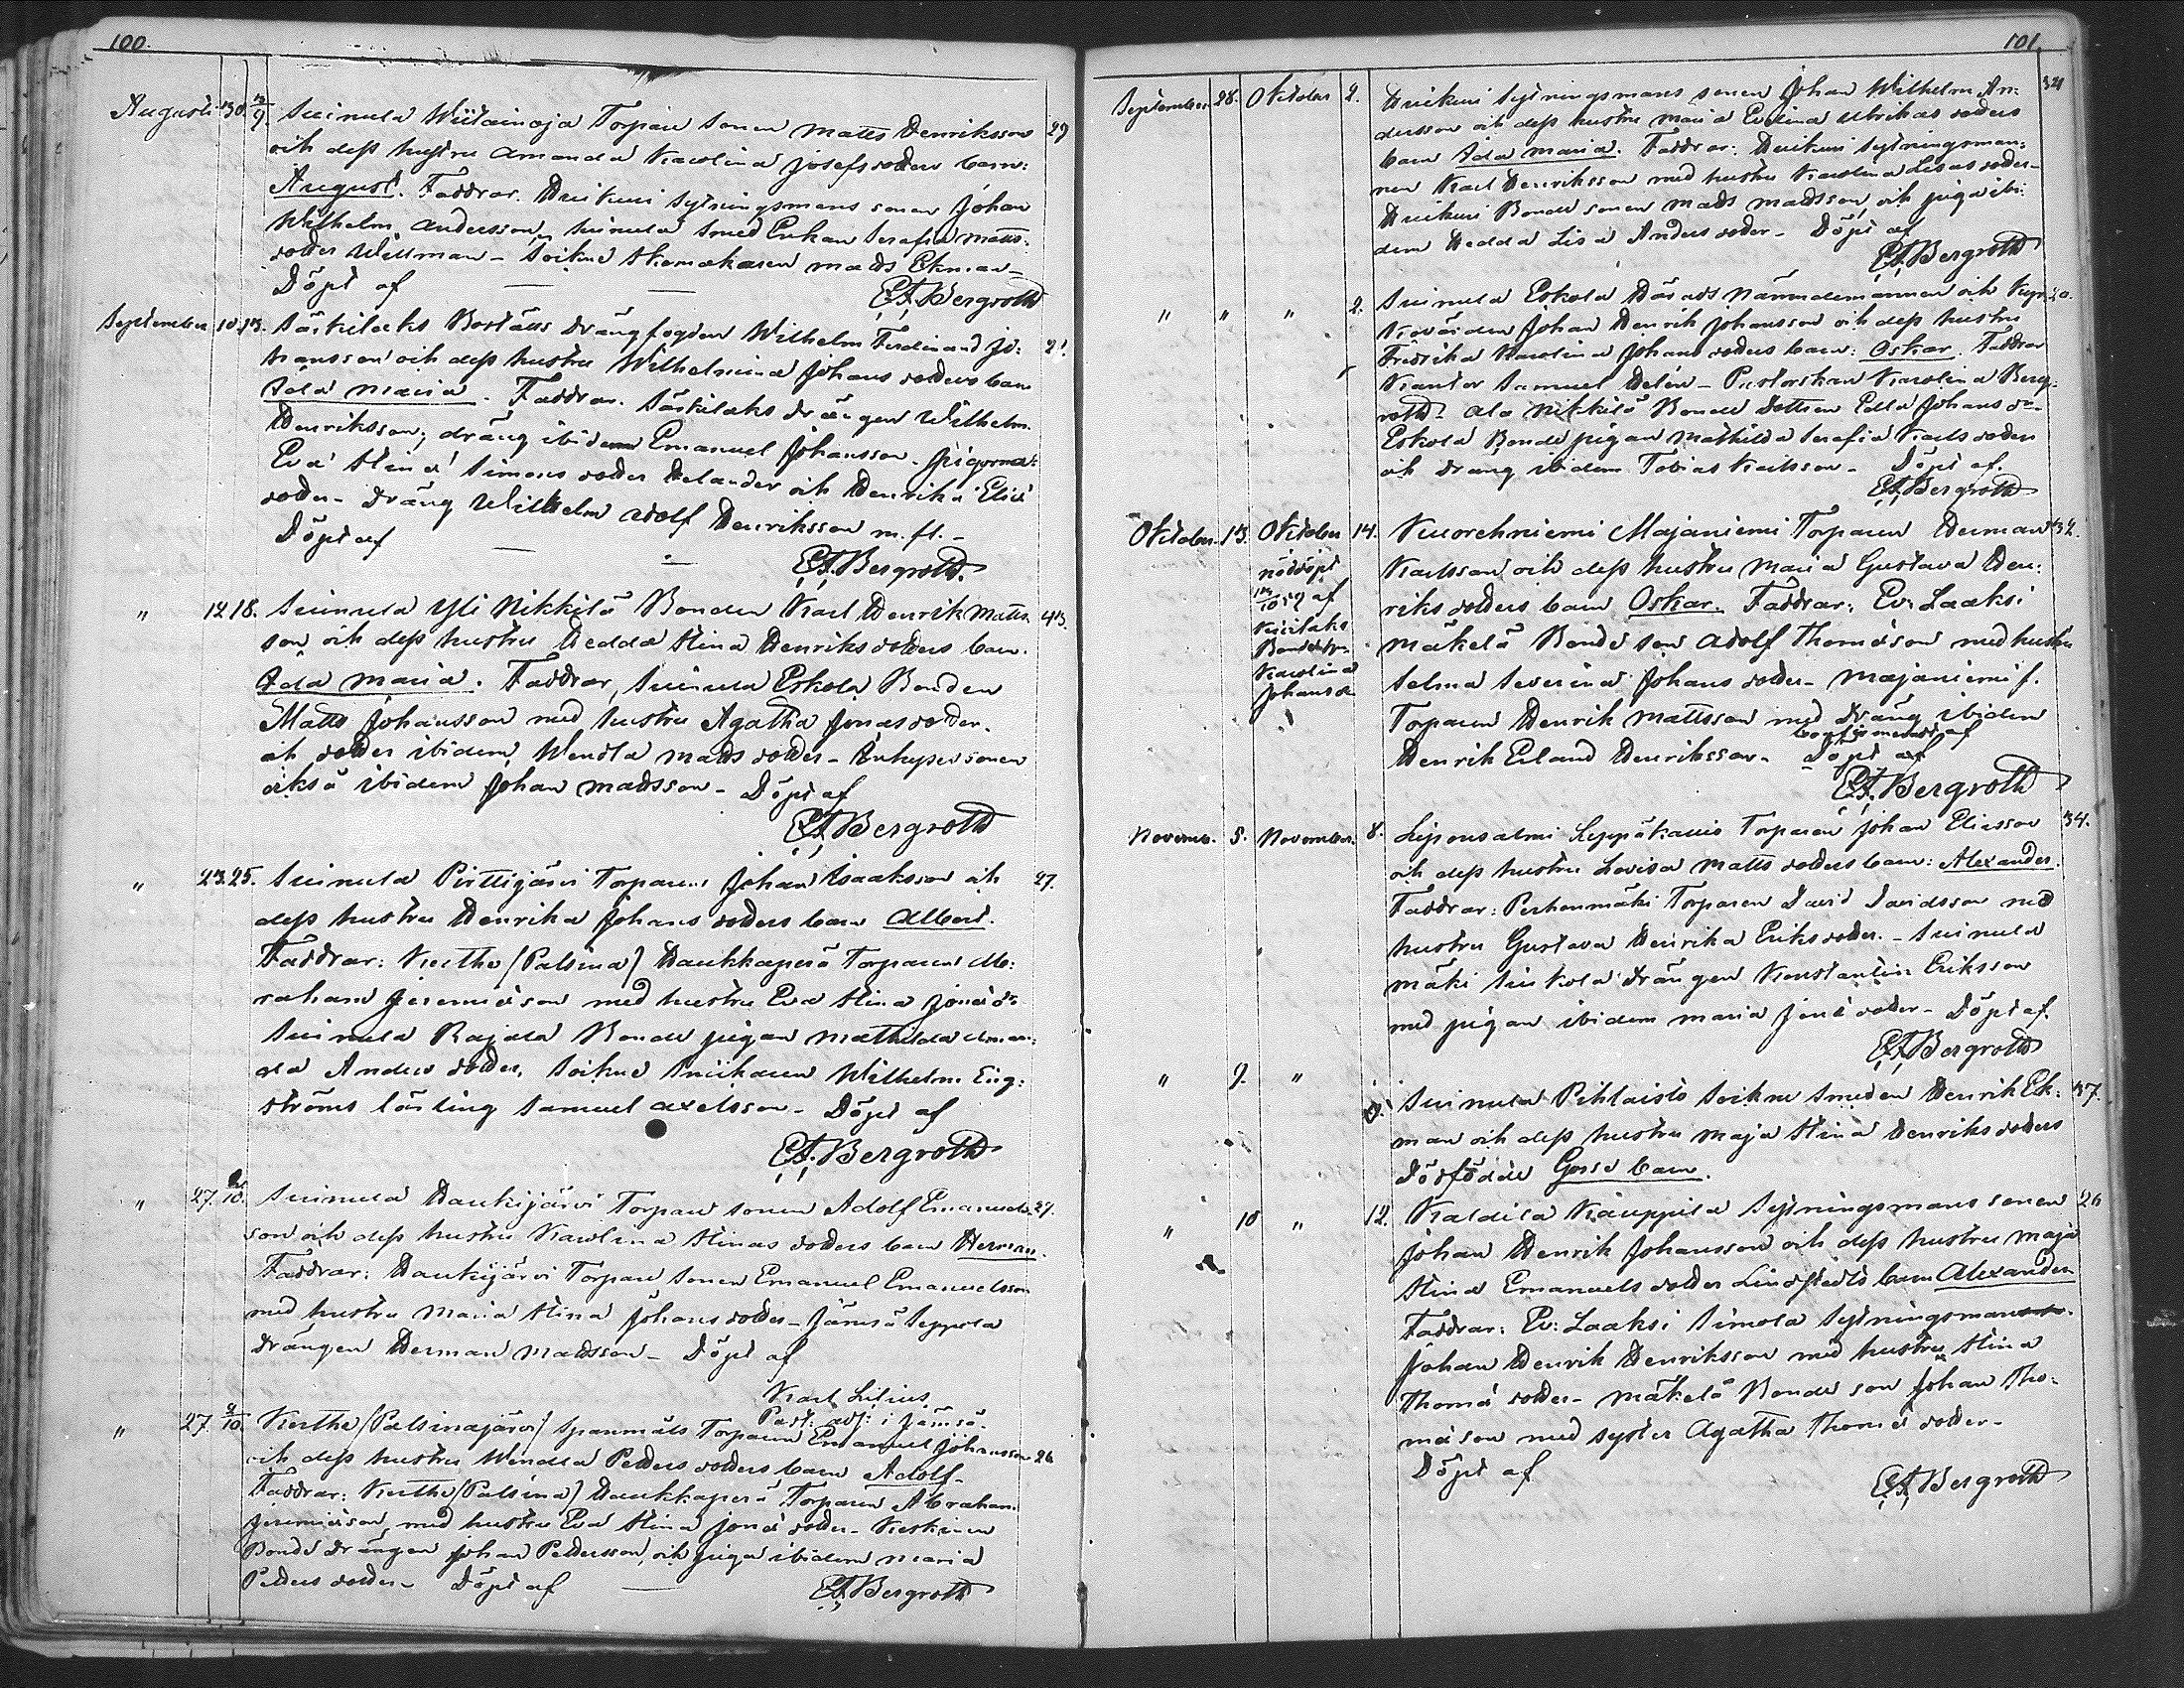 100.
Augusti 30. 3/9. Suinula Wiitainoja Torpare sonen Matts Henriksson 29
och dess hustru Amanda Karolina Josefsdotters barn:
August. Faddrar. Huikuri Sytningsmans sonen Johan
Wilhelm Andersson, Suinula Smed Enkan Serafia Matts-
dotter Willman – Sockne Skomakaren Mats Ekman –
Döpt af E.F. Bergroth
September 10. 13. Särkilaks Boställs drängfogden Wilhelm Ferdinand Jo-
hansson och dess hustru Wilhelmina Johans dotters barn
Ida Maria. Faddrar. Särkilaks drängen Wilhelm
Henriksson, dräng ibidem Emanuel Johansson – pigorna:
Eva Stina Simons dotter Helander och Henrika Eliæ
dotter – dräng Wilhelm Adolf Henriksson m. fl. –
Döpt af
E.F. Bergroth.
" 12 18. Suinula Yli Nikkilä Bonden Karl Henrik Matts- 43.
son och dess hustru Hedda Stina Henriksdotters barn.
Ida Maria. Faddrar, Suinula Eskola Bonden
Matts Johansson med hustru Agatha Jonasdotter.
och dotter ibidem, Wendla Mattsdotter – Inhyses sonen
också ibidem Johan Mattsson – Döpt af
E.F. Bergroth
" 23. 25. Suinula Pirttijärvi Torparen Johan Isaksson och 27.
dess hustru Henrika Johans dotters barn Albert.
Faddrar: Kertte (Palsina) Haukkaperä Torparen Ab-
raham Jeremiæson med hustru Eva Stina Jonædr
Suinula Rajala Bonde pigan Mathilda Aman-
da Anders dotter, Sockne Snickaren Wilhelm Eng-
ströms lärling Samuel Axelsson – Döpt af
E.F. Bergroth
" 27. 2/10. Suinula Haukijärvi Torpare sonen Adolf Emanuels- 27.
son och dess hustru Karolina Stinas dotters barn Herman.
Faddrar: Haukijärvi Torpare sonen Emanuel Emanuelsson
med hustru Maria Stina Johansdotter – Jämsä Seppola
drängen Herman Mattsson – Döpt af
Karl Lilius
Past. adj: i Jämsä.
" 27. 2/10. Kertte (Palsinajärvi) Torparen Emanuel Johansson 26
och dess hustru Wendla Petters dotters barn Adolf –
Faddrar: Kertte (Palsina) Haukkaperä Torparen Abraham
Jeremiæson, med hustru Eva Stina Jonæ dotter – Keskinen
Bonde drängen Johan Pettersson, och piga ibidem Maria
Petters dotter – Döpt af E.F. Bergroth
101.
September 28. Oktober 2. Huikuri Sytningsmans sonen Johan Wilhelm An-
dersson och dess hustru Maria Evelina Ulrikas dotters
barn Ida Maria. Faddrar: Huikuri Sytningsman-
nen Karl Henriksson med hustru Karolina Lisas dotter –
Huikuri Bonde sonen Mats Matsson och piga ibi-
dem Hedda Lisa Anders dotter – Döpt af
E.F. Bergroth
" " " 2. Suinula Eskola Härads Nämndemannen och
Johan Henrik Johansson och dess hustru
Fredrika Karolina Johans dotters barn: Oskar. Faddrar
Kantor Samuel Helin – Pastorskan Karolina Berg-
roth – Ala Nikkilä Bonde Dottren Edla Johans dr –
Eskola Bonde pigan Mathilda Serafia Karls dotter
och dräng ibidem Tobias Karlsson – Döpt af.
E.F. Bergroth
Oktober 13. Oktober 14. Kuorehniemi Majaniemi Torparen Herman 32.
nöddöpt
13/10 af
Karolina
Johans dr
Karlsson och dess hustru Maria Gustava Hen-
riks dotters barn Oskar. Faddrar: Ev: Laaksi
Mäkelä Bonde son Adolf Thomæson med hustru
Selma Severina Johans dotter – Majaniemi f.
Torparen Henrik Mattsson med dräng ibidem
Henrik Erland Henriksson – Döpt af
E.F. Bergroth
Novemb. 5. November. 8. Liponsalmi Leppäkanis Torparen Johan Eliasson 34.
och dess hustru Lovisa Matts dotters barn: Alexander.
Faddrar: Perhonmäki Torparen David Davidsson med
hustru Gustava Henrika Eriksdotter. – Suinula
Mäki Siukola drängen Konstantin Eriksson
med pigan ibidem Maria Jonædotter – Döpt af.
E.F. Bergroth
" 9. " Suinula Pihlaisto Sockne Smeden Henrik Ek- 37.
man och dess hustru Maja Stina Henriksdotters
Dödfödde Gosse barn.
" 10 " 12. Kaldila Kauppila Sytningsmans sonen 26
Johan Henrik Johansson och dess hustru Maja
Stina Emanuels dotter Lindstedts barn Alexander
Faddrar: Ev: Laaksi Simola Sytningsman
Johan Henrik Henriksson med hustru Stina
Thomæ dotter – Mäkelä Bonde son Johan Tho-
mæson med syster Agatha Thomæ dotter –
Döpt af
E.F. Bergroth